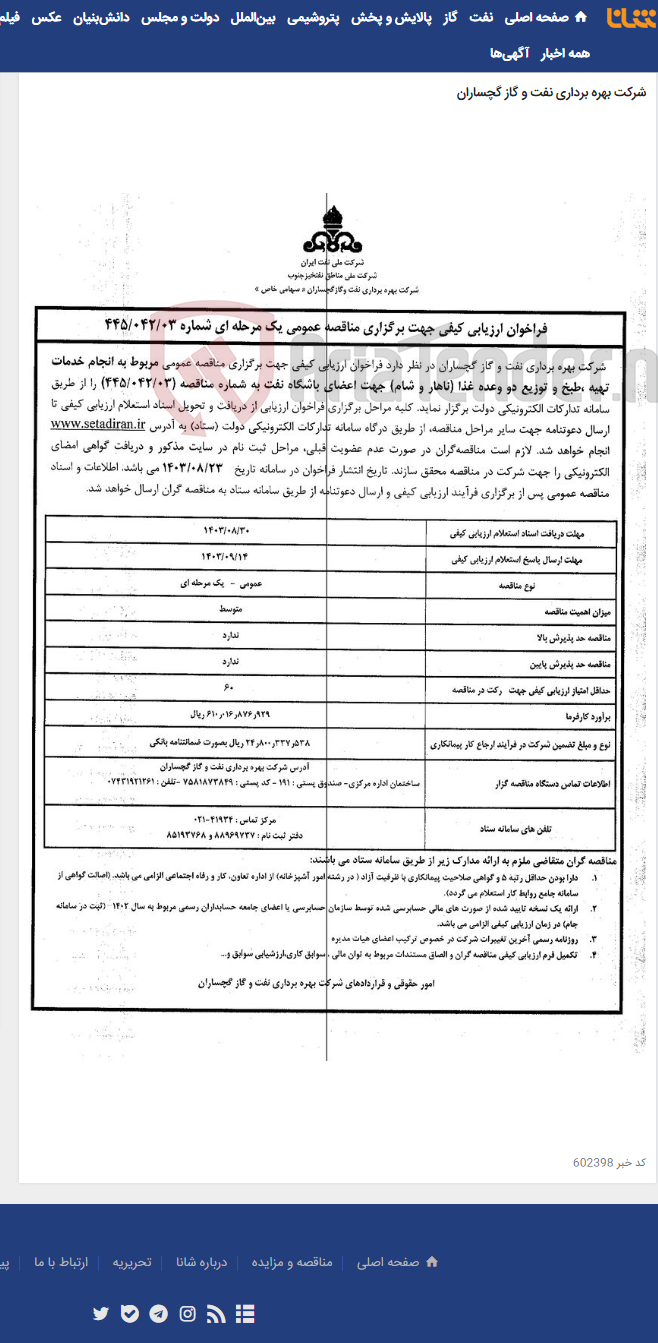 شانا
صفحه اصلی نفت گاز پالایش و پخش پتروشیمی بین‌الملل دولت و مجلس دانش‌بنیان عکس فیلم
همه اخبار آگهی‌ها
شرکت بهره برداری نفت و گاز گچساران
شرکت ملی نفت ایران
شرکت ملی مناطق نفتخیزجنوب
شرکت بهره برداری نفت وگازگچساران « سهامی خاص »
فراخوان ارزیابی کیفی جهت برگزاری مناقصه عمومی یک مرحله ای شماره ۴۴۵/۰۴۲/۰۳
شرکت بهره برداری نفت و گاز گچساران در نظر دارد فراخوان ارزیابی کیفی جهت برگزاری مناقصه عمومی مربوط به انجام خدمات
تهیه ،طبخ و توزیع دو وعده غذا (ناهار و شام) جهت اعضای باشگاه نفت به شماره مناقصه (۴۴۵/۰۴۲/۰۳) را از طریق
سامانه تدارکات الکترونیکی دولت برگزار نماید. کلیه مراحل برگزاری فراخوان ارزیابی از دریافت و تحویل اسناد استعلام ارزیابی کیفی تا
ارسال دعوتنامه جهت سایر مراحل مناقصه، از طریق درگاه سامانه تدارکات الکترونیکی دولت (ستاد) به آدرس www.setadiran.ir
انجام خواهد شد. لازم است مناقصه‌گران در صورت عدم عضویت قبلی، مراحل ثبت نام در سایت مذکور و دریافت گواهی امضای
الکترونیکی را جهت شرکت در مناقصه محقق سازند. تاریخ انتشار فراخوان در سامانه تاریخ ۱۴۰۳/۰۸/۲۳ می باشد. اطلاعات و اسناد
مناقصه عمومی پس از برگزاری فرآیند ارزیابی کیفی و ارسال دعوتنامه از طریق سامانه ستاد به مناقصه گران ارسال خواهد شد.
مهلت دریافت اسناد استعلام ارزیابی کیفی ۱۴۰۳/۰۸/۳۰
مهلت ارسال پاسخ استعلام ارزیابی کیفی ۱۴۰۳/۰۹/۱۴
نوع مناقصه عمومی - یک مرحله ای
میزان اهمیت مناقصه متوسط
مناقصه حد پذیرش بالا ندارد
مناقصه حد پذیرش پایین ندارد
حداقل امتیاز ارزیابی کیفی جهت رکت در مناقصه ۶۰
برآورد کارفرما ۶۱۰٫۰۱۶٫۸۷۶٫۹۲۹ ریال
نوع و مبلغ تضمین شرکت در فرآیند ارجاع کار پیمانکاری ۲۴٫۸۰۰٫۳۳۷٫۵۳۸ ریال بصورت ضمانتنامه بانکی
اطلاعات تماس دستگاه مناقصه گزار آدرس شرکت بهره برداری نفت و گاز گچساران
ساختمان اداره مرکزی- صندوق پستی : ۱۹۱ - کد پستی : ۷۵۸۱۸۷۳۸۴۹ -تلفن : ۰۷۴۳۱۹۲۱۲۶۱
تلفن های سامانه ستاد مرکز تماس : ۴۱۹۳۴-۰۲۱
دفتر ثبت نام : ۸۸۹۶۹۷۳۷ و ۸۵۱۹۳۷۶۸
مناقصه گران متقاضی ملزم به ارائه مدارک زیر از طریق سامانه ستاد می باشند:
۱. دارا بودن حداقل رتبه ۵ و گواهی صلاحیت پیمانکاری با ظرفیت آزاد ( در رشته امور آشپزخانه) از اداره تعاون، کار و رفاه اجتماعی الزامی می باشد. (اصالت گواهی از
سامانه جامع روابط کار استعلام می گردد).
۲. ارائه یک نسخه تایید شده از صورت های مالی حسابرسی شده توسط سازمان حسابرسی یا اعضای جامعه حسابداران رسمی مربوط به سال ۱۴۰۲ (ثبت در سامانه
جام) در زمان ارزیابی کیفی الزامی می باشد.
۳. روزنامه رسمی آخرین تغییرات شرکت در خصوص ترکیب اعضای هیات مدیره
۴. تکمیل فرم ارزیابی کیفی مناقصه گران و الصاق مستندات مربوط به توان مالی ، سوابق کاری،ارزشیابی سوابق و...
امور حقوقی و قراردادهای شرکت بهره برداری نفت و گاز گچساران
کد خبر 602398
صفحه اصلی مناقصه و مزایده درباره شانا تحریریه ارتباط با ما